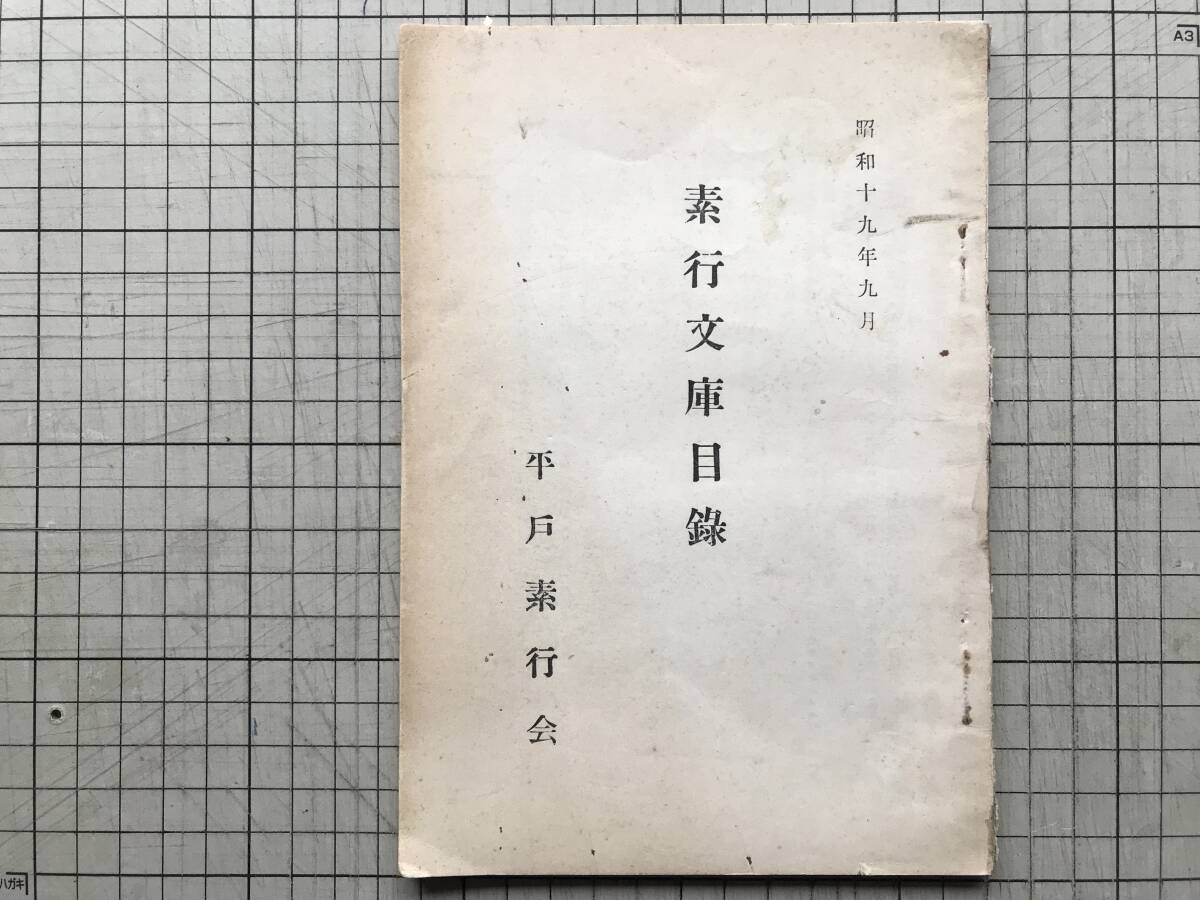 昭和十九年九月
素行文庫目錄
平戸素行会
A3
ハガキ